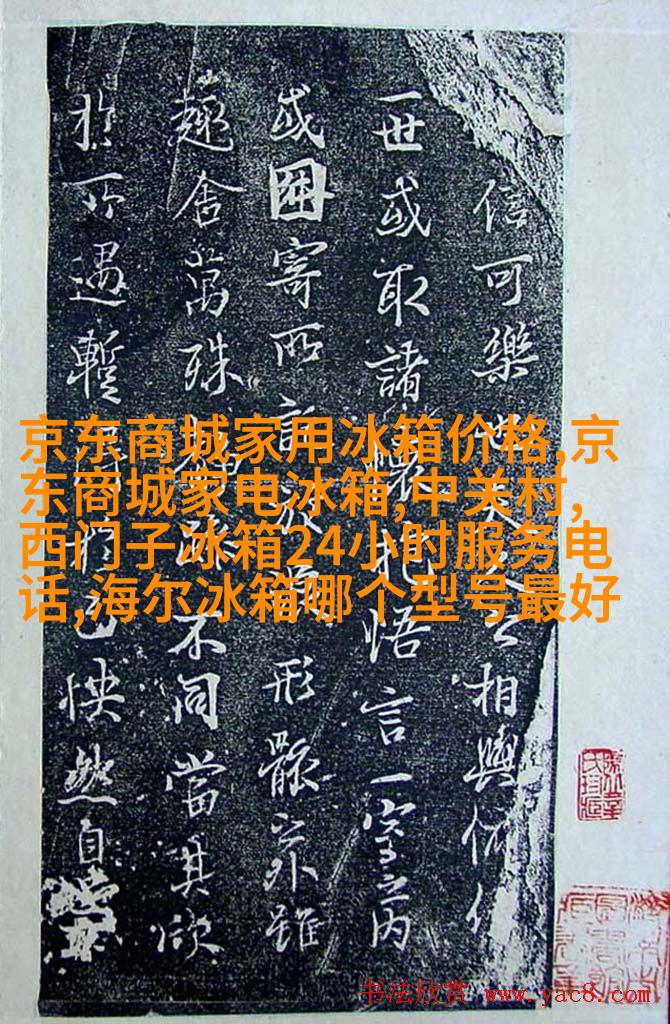 信可樂也夫人之相與俯仰
一世或取諸懷抱悟言一室之內
或因寄所託放浪形骸之外雖
趣舍萬殊靜躁不同當其欣
於所遇暫得於己怏然自
京东商城家用冰箱价格,京
东商城家电冰箱,中关村,
西门子冰箱24小时服务电
话,海尔冰箱哪个型号最好
书法欣赏 www.yac8.com